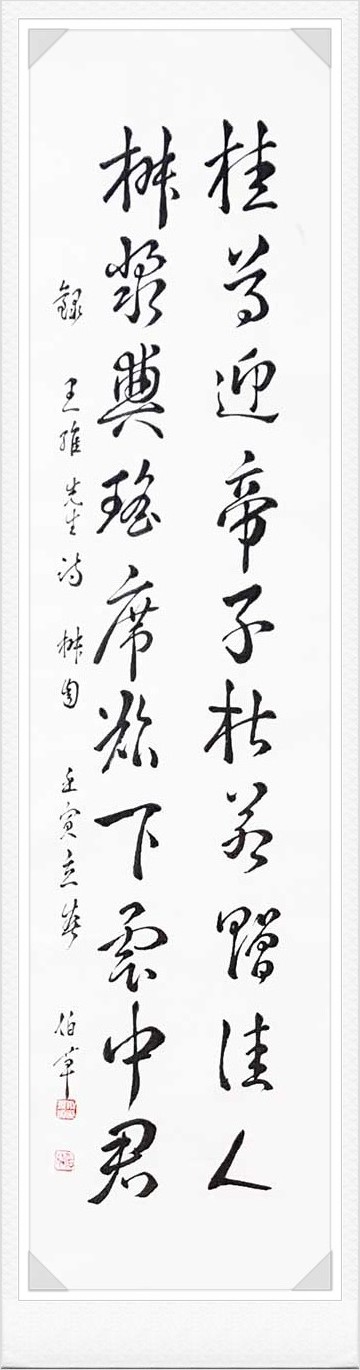 桂尊迎帝子杜若贈佳人
椒漿奠瑤席欲下雲中君
錄 王維先生詩 椒園 壬寅立春 伯